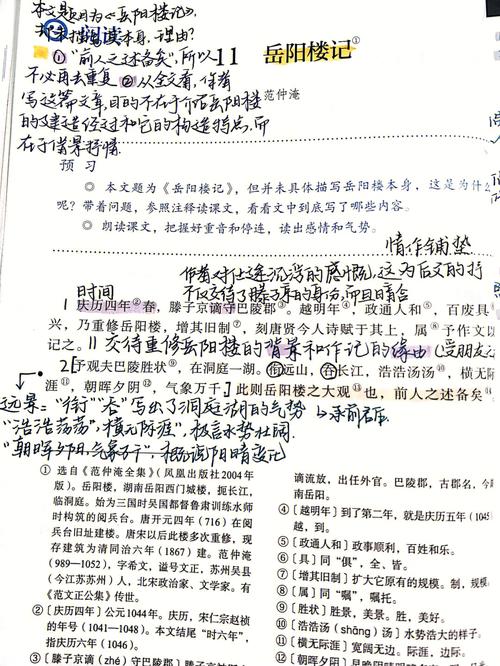 本文题目为《岳阳楼记》,
却未描写楼本身,理由?
阅读
①"前人之述备矣",所以
不必再去重复 ②从全文看,作者
写这篇文章,目的不在于介绍岳阳楼
的建造经过和它的构造特点,而
在于借景抒情.
11 岳阳楼记①
范仲淹
预习
◎ 本文题为《岳阳楼记》,但并未具体描写岳阳楼本身,这是为什么
呢?带着问题,参照注释读课文,看看文中到底写了哪些内容。
◎ 朗读课文,把握好重音和停连,读出感情和气势。
情作铺垫
作者对仕途沉浮的感慨,这为后文的抒
时间
不仅交待了滕子京的身份,而且暗合
1庆历四年②春,滕子京谪守巴陵郡③。越明年④,政通人和⑤,百废具
兴,乃重修岳阳楼,增其旧制⑦,刻唐贤今人诗赋于其上,属⑧予作文以
记之。
交待重修岳阳楼的背景和作记的缘由(受朋友之
2[予观夫巴陵胜状⑨,在洞庭一湖。衔远山,吞长江,浩浩汤汤⑩,横无际
涯⑪,朝晖夕阴⑫,气象万千]此则岳阳楼之大观⑬也,前人之述备矣
承前启后
远景:"衔""吞"写出了洞庭湖的气势
"浩浩荡荡","横无际涯",极言水势壮阔.
"朝晖夕阴,气象万千",概说阴晴变化
① 选自《范仲淹全集》(凤凰出版社2004年
版)。岳阳楼,湖南岳阳西门城楼,扼长江,
临洞庭。始为三国时吴国都督鲁肃训练水师
时构筑的阅兵台。唐开元四年(716)在阅
兵台旧址建楼。唐宋以后此楼多次重修,现
存建筑为清同治六年(1867)建。范仲淹
(989—1052),字希文,谥号文正,苏州吴县
(今江苏苏州)人,北宋政治家、文学家。有
《范文正公集》传世。
②〔庆历四年〕公元1044年。庆历,宋仁宗赵祯
的年号(1041—1048)。本文结尾"时六年",
指庆历六年(1046)。
③〔滕子京谪(zhé)守巴陵郡〕滕子京
谪流放,出任外官。巴陵郡,古郡名,今
南岳阳。
④〔越明年〕到了第二年,就是庆历五年(1045
越,到。
⑤〔政通人和〕政事顺利,百姓和乐。
⑥〔具〕同"俱",全、皆。
⑦〔增其旧制〕扩大它原有的规模。制,规模
⑧〔属〕同"嘱",嘱托。
⑨〔胜状〕胜景,美景。胜,美好。
⑩〔浩浩汤汤(shāng)汤〕水势浩大的样子。
⑪〔横无际涯〕宽阔无边。际涯,边际。